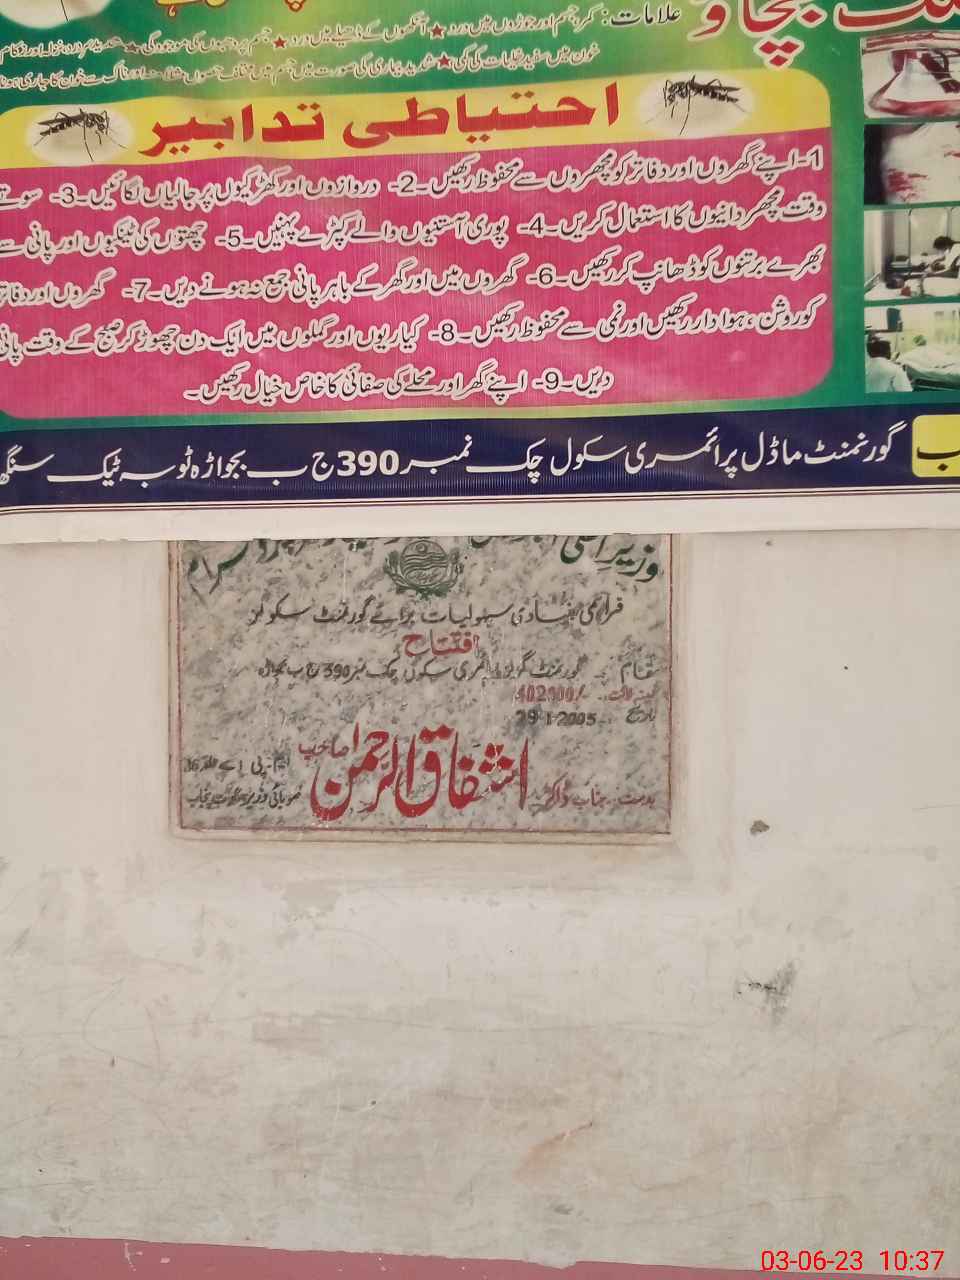 بچاؤ
علامات: کمر، جسم اور جوڑوں میں درد ★ آنکھوں کے ڈھیلے میں درد ★ جسم پر دھبوں کی موجودگی ★
خون میں سفید خلیات کی کمی ★ شدید بیماری کی صورت میں جسم کے مختلف حصوں اور ناک سے خون کا جاری ہونا
احتیاطی تدابیر
1- اپنے گھروں اور دفاتر کو مچھروں سے محفوظ رکھیں۔ 2- دروازوں اور کھڑکیوں پر جالیاں لگائیں۔ 3- سوتے
وقت مچھر دانیوں کا استعمال کریں۔ 4- پوری آستینوں والے کپڑے پہنیں۔ 5- چھتوں کی ٹینکیوں اور پانی سے
بھرے برتنوں کو ڈھانپ کر رکھیں۔ 6- گھروں میں اور گھر کے باہر پانی جمع نہ ہونے دیں۔ 7- گھروں اور دفاتر
کو روشن، ہوا دار رکھیں اور نمی سے محفوظ رکھیں۔ 8- کیاریوں اور گملوں میں ایک دن چھوڑ کر صبح کے وقت پانی
دیں۔ 9- اپنے گھر اور محلے کی صفائی کا خاص خیال رکھیں۔
گورنمنٹ ماڈل پرائمری سکول چک نمبر 390 ج ب بجواڑہ ٹوبہ ٹیک سنگھ
وزیر اعلیٰ
فراہمی بنیادی سہولیات برائے گورنمنٹ سکولز
افتتاح
مقام گورنمنٹ گرلز پرائمری سکول چک نمبر 390 ج ب بجواڑہ
تخمینہ لاگت 402000/-
تاریخ 29-1-2005
بدست جناب ڈاکٹر اشفاق الرحمن صاحب ایم پی اے
صوبائی وزیر حکومت پنجاب
03-06-23 10:37